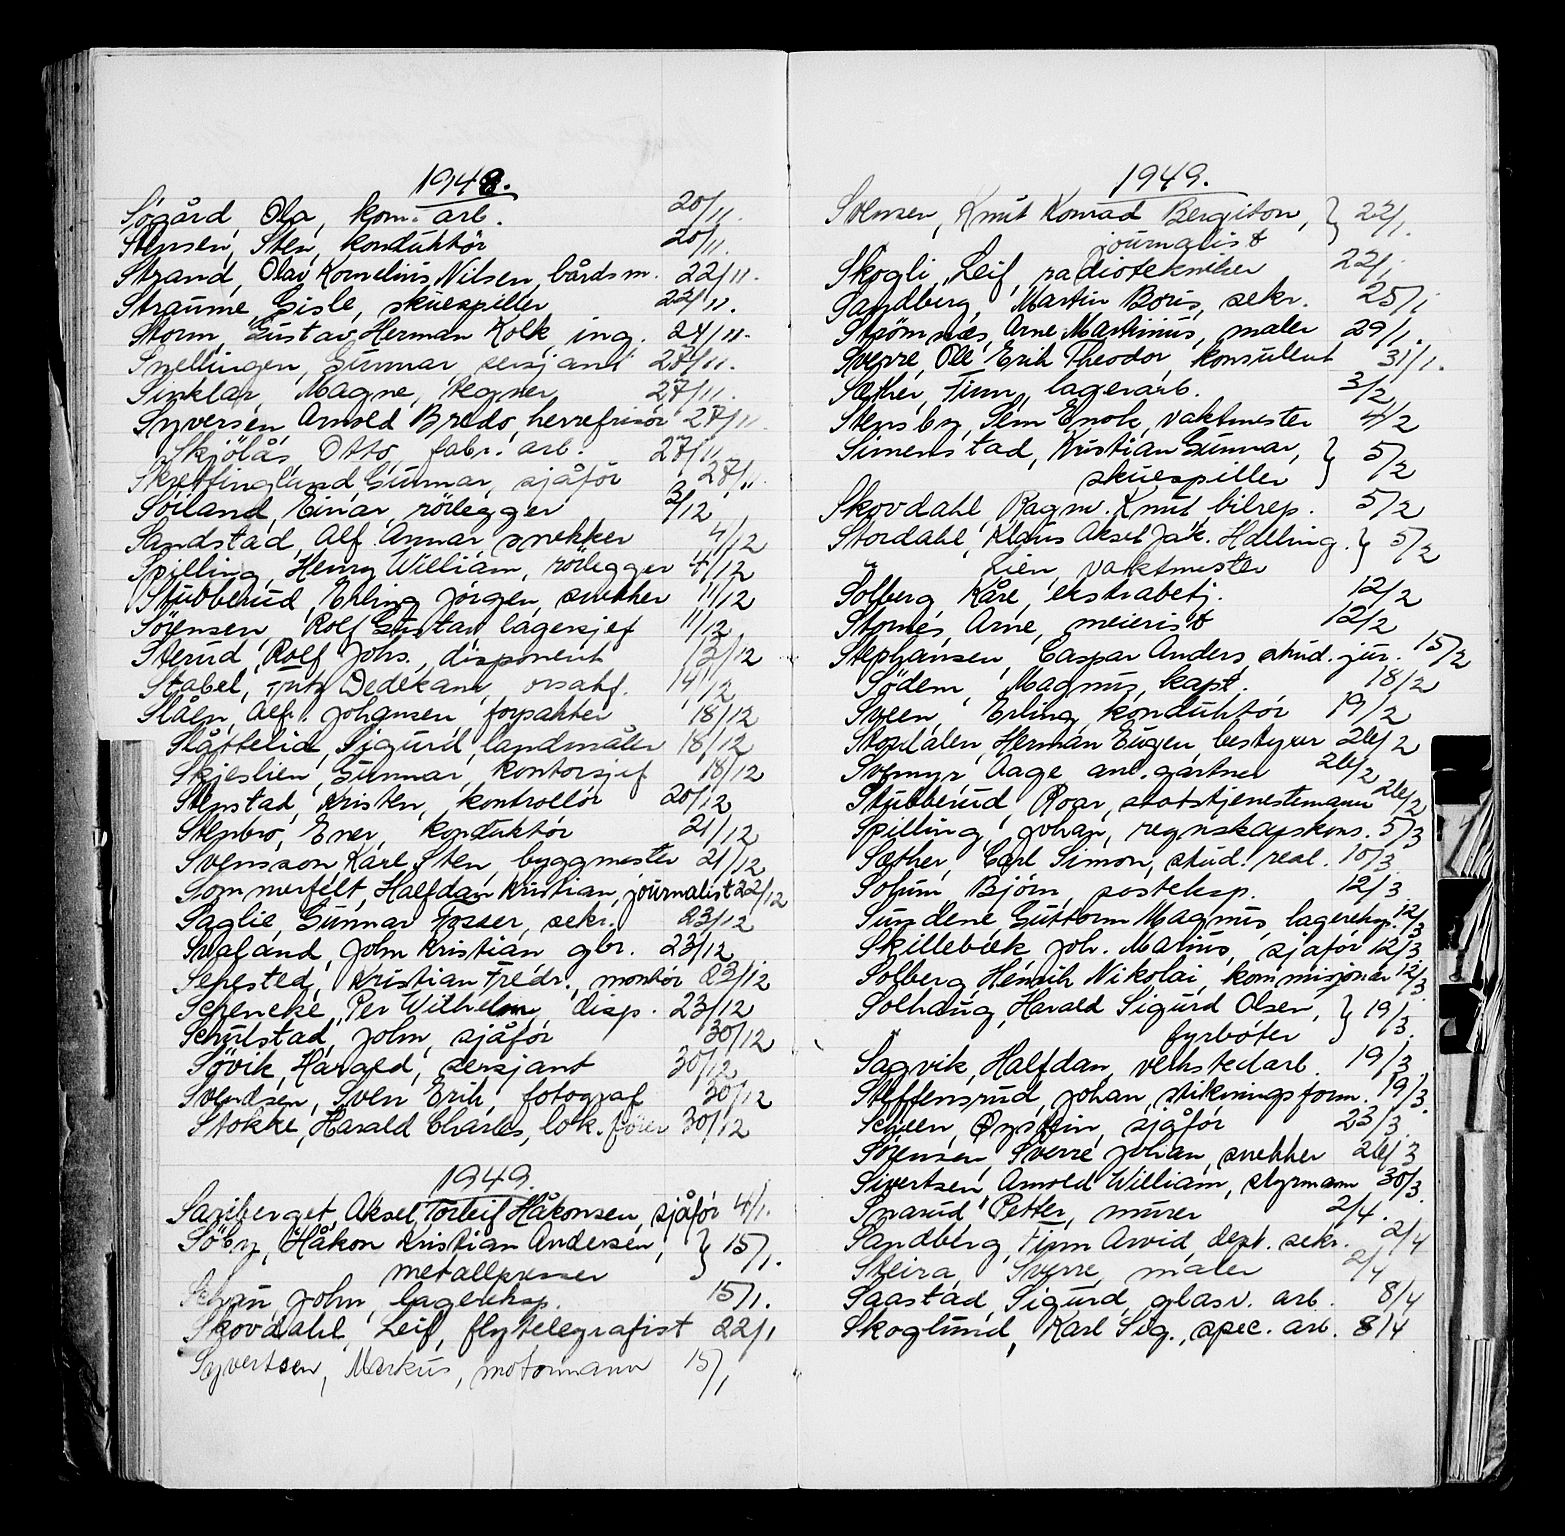 1948.
Søgård, Ola, kom. arb. 20/11.
Stensen, Sten, konduktør 20/11.
Strand, Olav Kornelius Nilsen, bårdsm. 22/11.
Straume, Gisle, skuespiller 22/11.
Storm, Gustav Herman Kolk, ing. 24/11.
Snellingen, Gunnar sersjant 27/11.
Sinklar, Magne, tegner 27/11.
Syversen Arnold Bredo, herrefrisør 27/11
Skjölås, Otto, fabr. arb. 27/11
Skreffingland Gunnar, sjåfør 27/11.
Söiland, Einar, rörlegger 3/12
Sandstad, Alf Annar snekker 4/12
Spilling, Henry William, rörlegger 4/12
Stubberud, Erling Jörgen, snekker 11/12
Sörensen, Rolf Gustav, lagersjef 11/12
Sterud, Rolf Johs., disponent 13/12
Stabel, Fritz Dedekam, orsakf. 14/12
Slåen, Alfr. Johansen, forpakter 18/12
Slåttelid, Sigurd, landmåler 18/12
Skjeslien, Gunnar, kontorsjef 18/12
Stenstad, Kristen, kontrollör 20/12
Stenbro, Ener, konduktör 21/12
Svensson Karl Sten, byggmester 21/12
Sommerfelt, Halfdan Kristian, journalist 22/12
Saglie, Gunnar Tosser, sekr. 23/12
Svaland, John Kristian gbr. 23/12
Sehested, Kristian Fredr., montör 23/12
Scheneke, Per Wilhelm, disp. 23/12
Schulstad, John, sjåför 30/12
Sövik, Harald, sersjant 30/12
Svendsen, Sven Erik, fotograf 30/12
Stokke, Harald Charles, lok.förer 30/12
1949.
Sandberget Aksel Torleif Håkonsen, sjåför 4/1.
Söby, Håkon Kristian Andersen, } 15/1.
metallpresser
Schau John, lagereksp. 15/1.
Skovdahl, Leif, flytelegrafist 22/1
Syvertsen, Markus, motormann 15/1
1949.
Svensen, Knut Konrad Bergiton, } 22/1.
journalist
Skogli, Leif, radiotekniker 22/1
Sandberg, Martin Boris, sekr. 25/1
Strömnæs, Arne Martinius, maler 29/1.
Sverre, Ole Erik Theodor, konsulent 31/1.
Sæther, Finn, lagerarb. 3/2
Stensby, Sem Enok, vaktmester 4/2
Simenstad, Kristian Gunnar, } 5/2
skuespiller
Skovdahl, Ragnv. Knut, bilrep. 5/2
Stordahl, Klaus Aksel Jak. Halling. } 5/2
" Lien, vaktmester
Solberg, Kåre, ekstrabetj. 12/2
Stornes, Arne, meierist 12/2
Stephansen, Caspar Anders, stud. jur. 15/2
Södem, Magnus, kapt. 18/2
Sveen, Erling, konduktör 19/2
Stordalen, Herman Eugen, bestyrer 26/2
Svemyr, Aage anl.gartner 26/2
Stubberud, Roar, statstjenestemann 26/2
Spilling, Johan, regnskapskons. 5/3
Sæther, Carl Simon, stud. real. 10/3
Solum Björn, posteksp. 12/3
Sundene, Guttorm Magnus, lagereksp. 12/3
Skillebæk, Joh. Marius, sjåför 12/3
Solberg, Henrik Nikolai, kommisjonær 12/3
Solhaug, Harald Sigurd Olsen, } 19/3.
" fyrböter
Sagvik, Halfdan, verkstedarb. 19/3
Steffensrud, Johan, stikningsform. 19/3.
Scheen, Öystein, sjåför 23/3
Sörensen, Sverre Johan, snekker 26/3
Sivertsen, Arnold William, styrmann 30/3.
Snarud Petter, murer 2/4.
Sandberg, Finn Arvid, dept. sekr. 2/4
Steira, Sverre, maler 2/4
Saastad, Sigurd, glasv. arb. 8/4
Skoglund, Karl Sig., spec. arb. 8/4